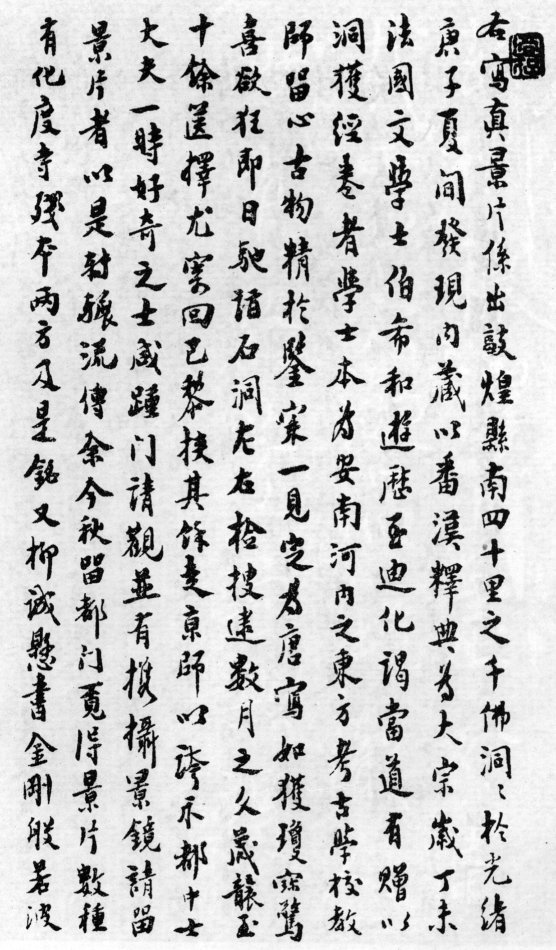 右寫真景片係出敦煌縣南四十里之千佛洞〻於光緒
庚子夏間發現內藏以番漢釋典為大宗歲丁未
法國文學士伯希和遊歷至迪化謁當道有贈以
洞獲經卷者學士本為安南河內之東方考古學校教
師留心古物精於鑒一見定為唐寫如獲瓊寶驚
喜欲狂即日馳詣石洞左右檢搜逮數月之久至
十餘篋擇尤寄回巴黎挾其餘走京師以誇示都中士
大夫一時好奇之士咸踵門請觀並有携攝景鏡請留
景片者以是轉輾流傳余今秋留都門覓得景片數種
有化度寺殘本兩方及是銘又柳誠懸書金剛般若波